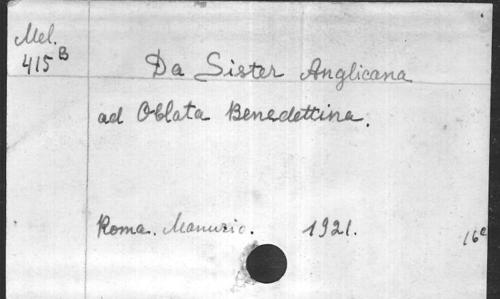 Mel.
415 B
Da Sister Anglicana
ad Oblata Benedettina.
Roma. Manuzio. 1921.
16º